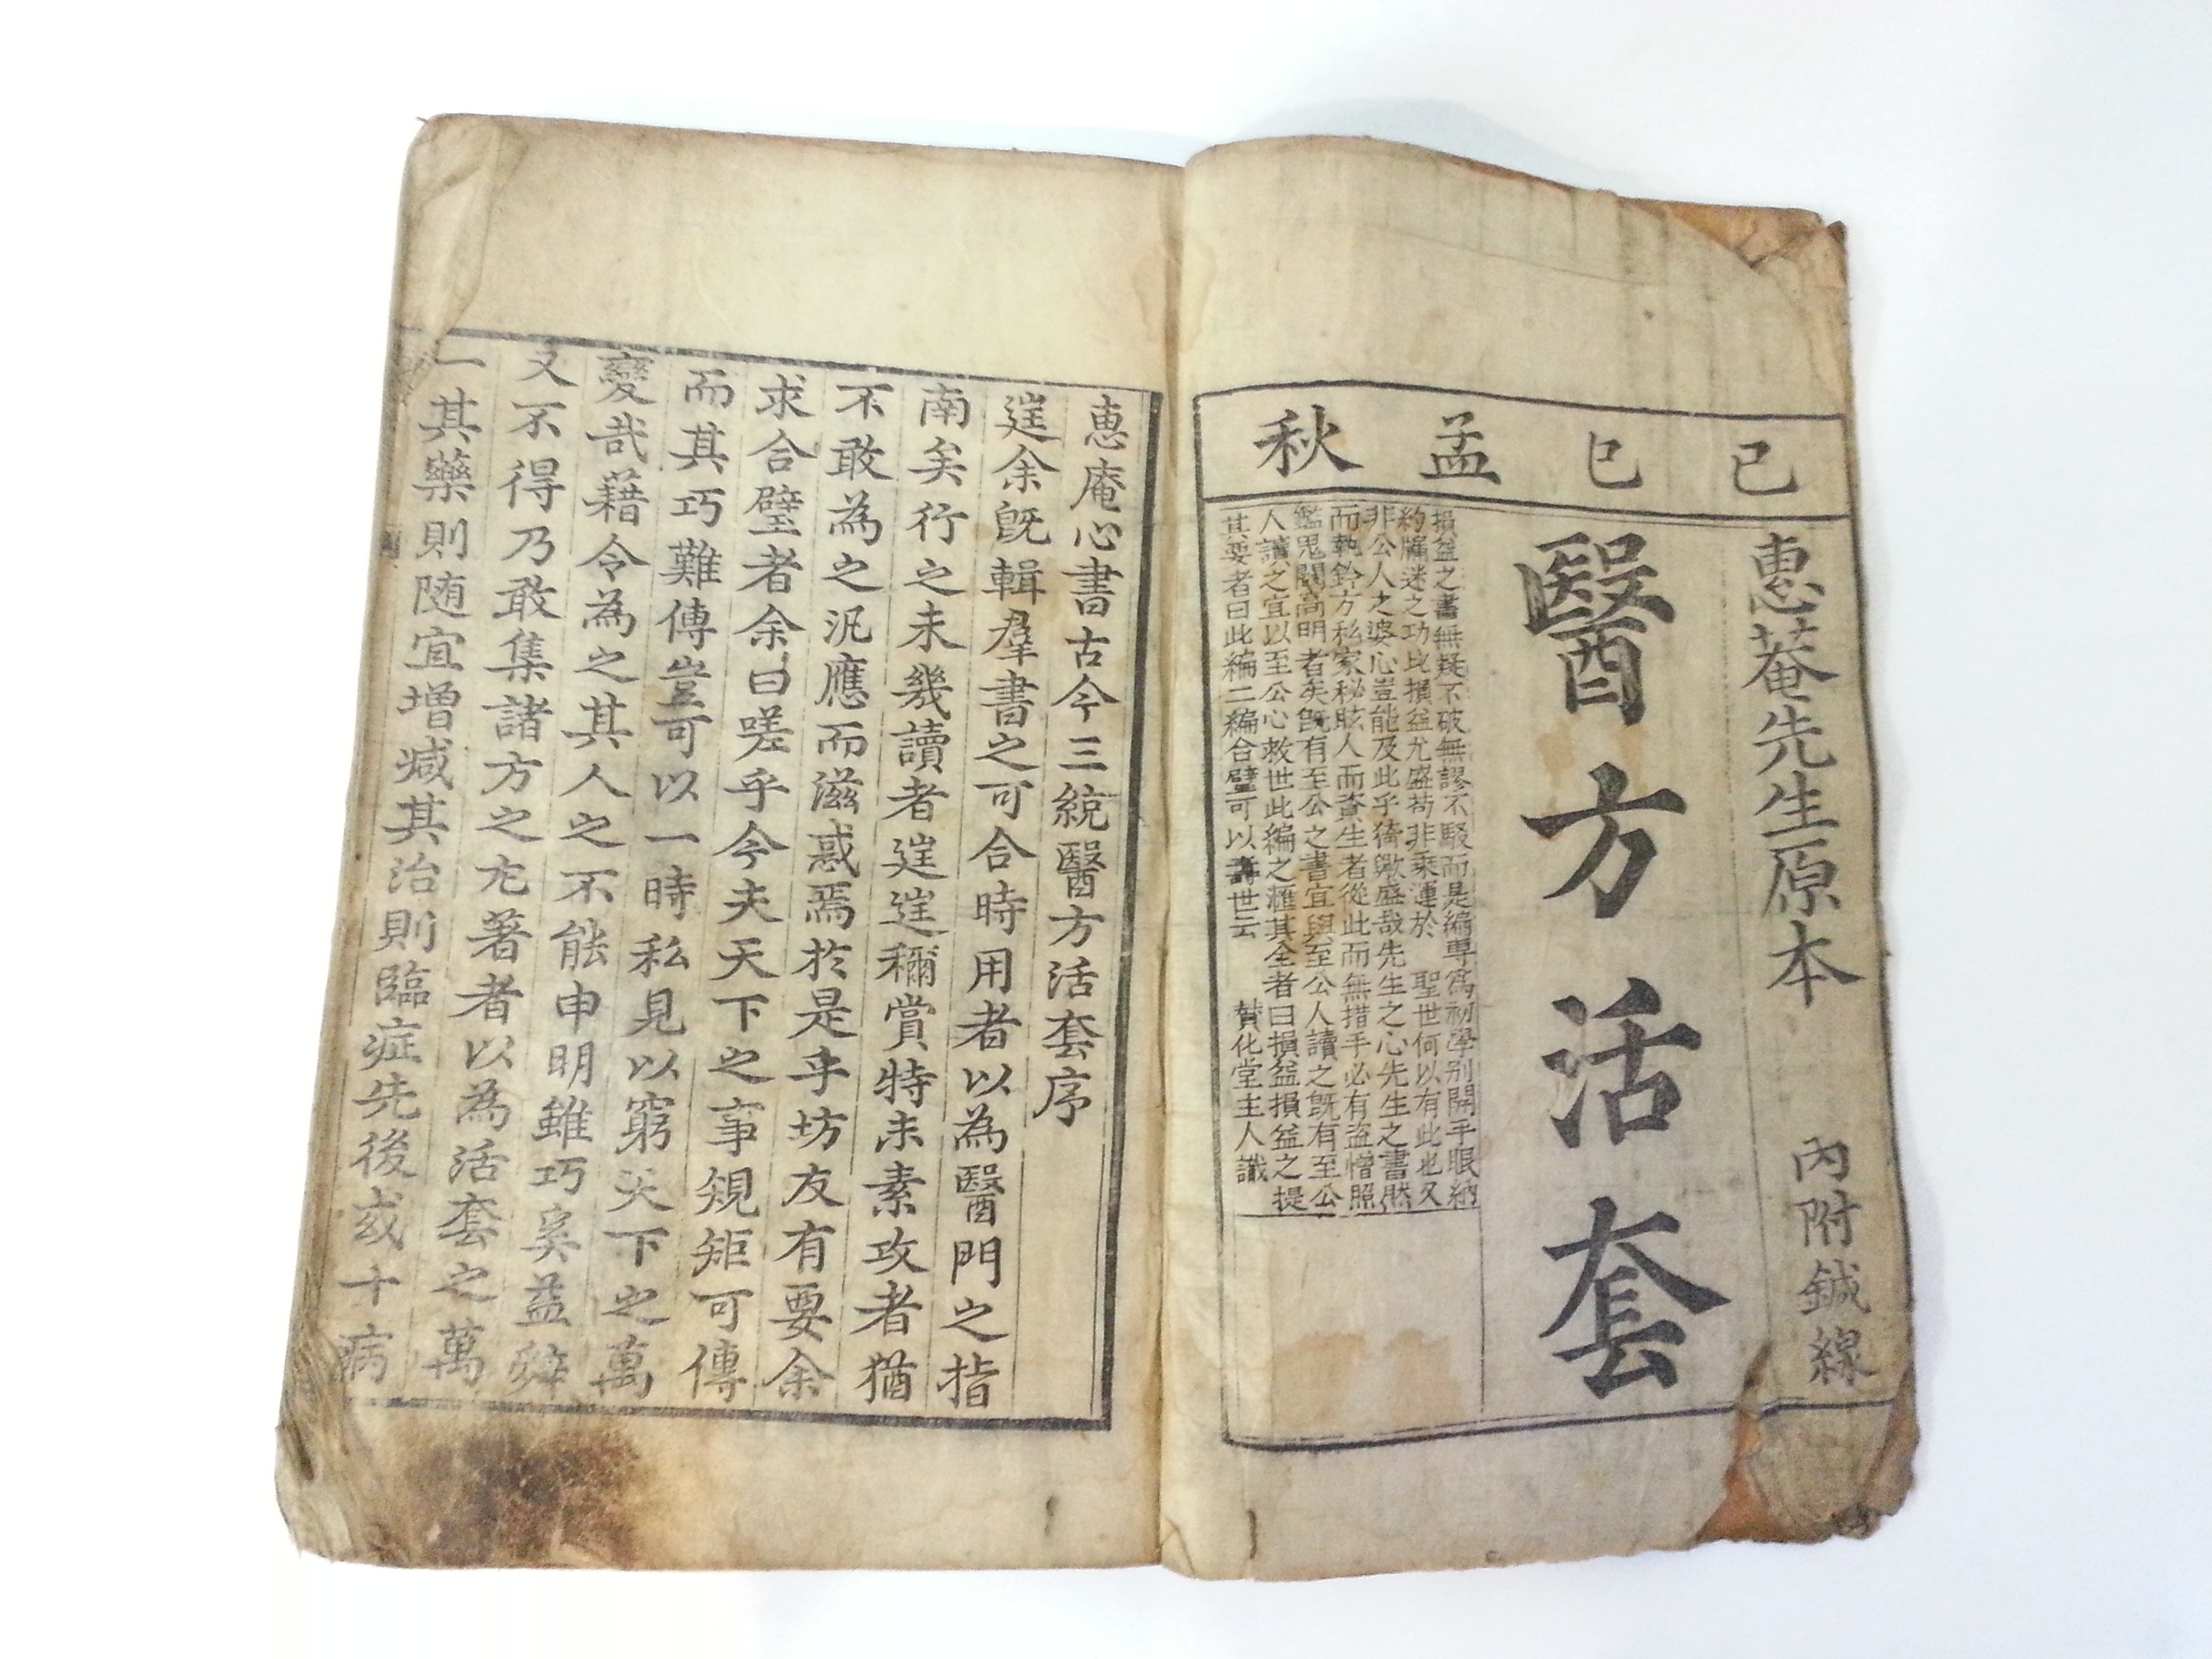 己巳孟秋
惠菴先生原本 內附鍼線
醫方活套
損益之書無疑不破無謬不駁而是編專爲初學別開手眼納
約牖迷之功比損益尤盛苟非乘運於 聖世何以有此也又
非公人之婆心豈能及此乎猗歟盛哉先生之心先生之書然
而執鈴方私家秘眩人而資生者從此而無措手必有盜憎照
鑑鬼闞高明者矣旣有至公之書宜與至公人讀之旣有至公
人讀之宜以至公心救世此編之滙其全者曰損益損益之提
其要者曰此編二編合璧可以壽世云 贊化堂主人識
惠庵心書古今三統醫方活套序
迋余旣輯羣書之可合時用者以為醫門之指
南矣行之未幾讀者迋迋稱賞特未素攻者猶
不敢為之汎應而滋惑焉於是乎坊友有要余
求合璧者余曰嗟乎今夫天下之事䂓矩可傳
而其巧難傳豈可以一時私見以窮天下之萬
變哉藉令為之其人之不能申明雖巧奚益辤
又不得乃敢集諸方之尤著者以為活套之萬
一其藥則随宜增減其治則臨症先後或十病